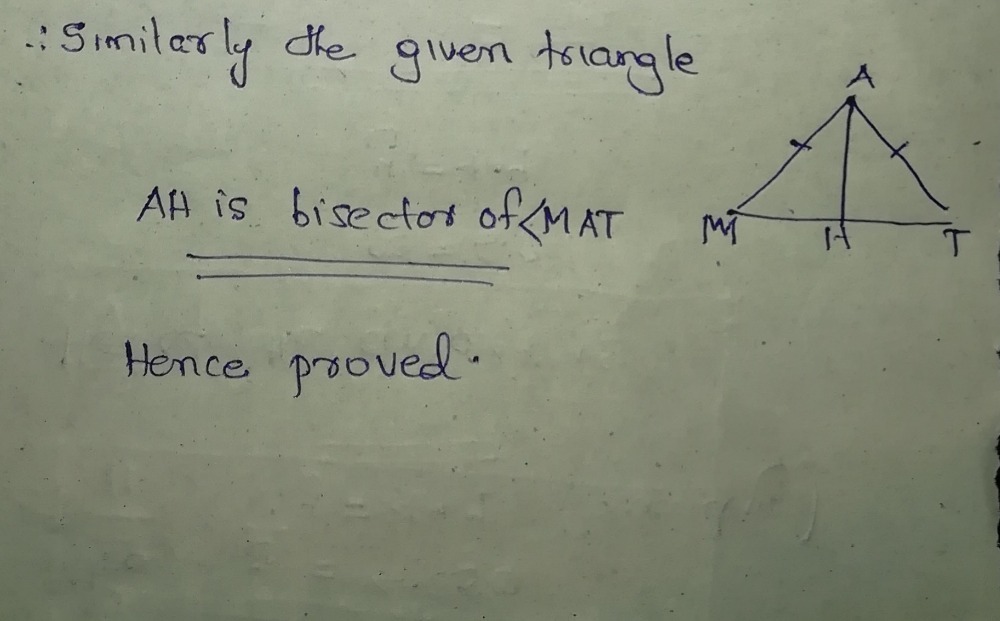 ∴ Similarly the given triangle
A
AH is bisector of <MAT
M H T
Hence proved.